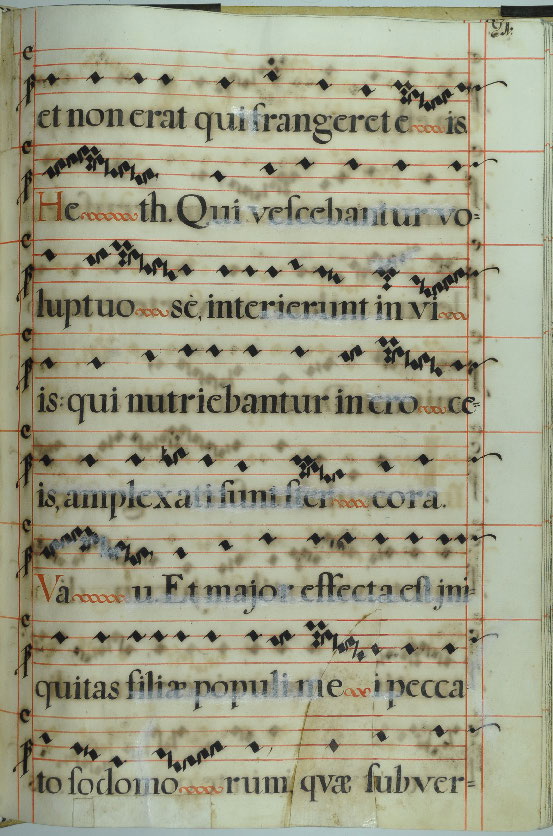 91.
et non erat qui frangeret e is
He th. Qui veſcebantur vo=
luptuo sè, interierunt in vi
is: qui nutriebantur in cro ce=
is, amplexati ſunt ſter cora.
Va u. Et major effecta eſt jni=
quitas filiæ populi me i pecca
to ſodomo rum, quæ ſubver=